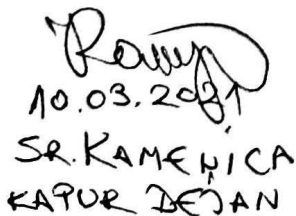 10.03.2021
SR. KAMENICA
KAPUR DEJAN